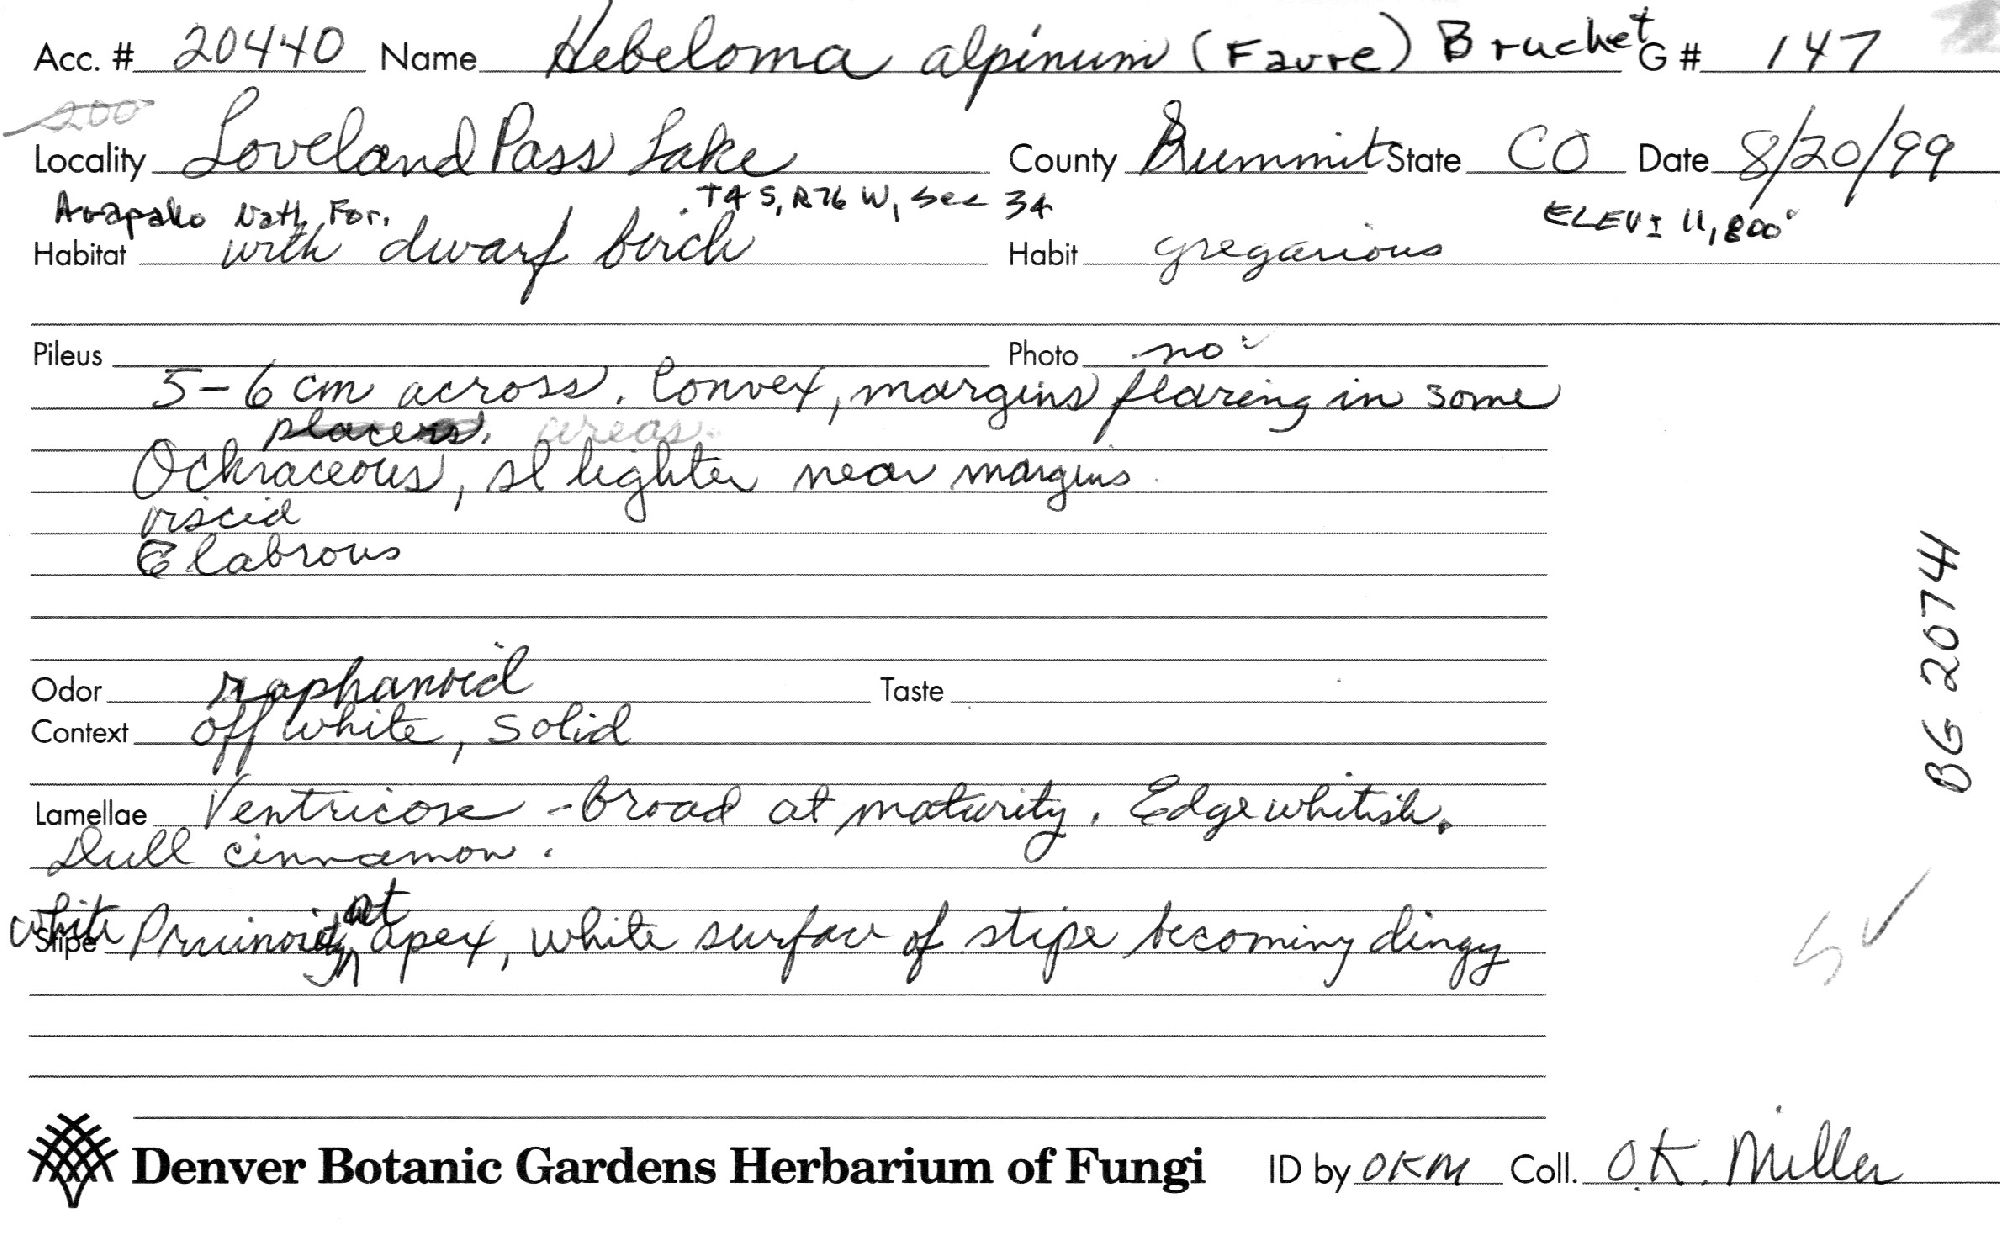 Acc. # 20440 Name Hebeloma alpinum (Favre) Bruchet G # 147
200
Locality Loveland Pass Lake County Summit State CO Date 8/20/99
Arapaho Natl. For. T4 S, R76 W, Sec 34 ELEV: 11,800'
Habitat with dwarf birch Habit gregarious
Pileus Photo no
5-6 cm across. Convex, margins flaring in some
places. areas.
Ochraceous, sl lighter near margins
viscid
Glabrous
Odor raphanoid Taste
Context off white, solid
Lamellae Ventricose - broad at maturity. Edge whitish.
Dull cinnamon.
at
Stipe white Pruinoid apex, white surface of stipe becoming dingy
BG 2074
Denver Botanic Gardens Herbarium of Fungi ID by OKM Coll. O.K. Miller